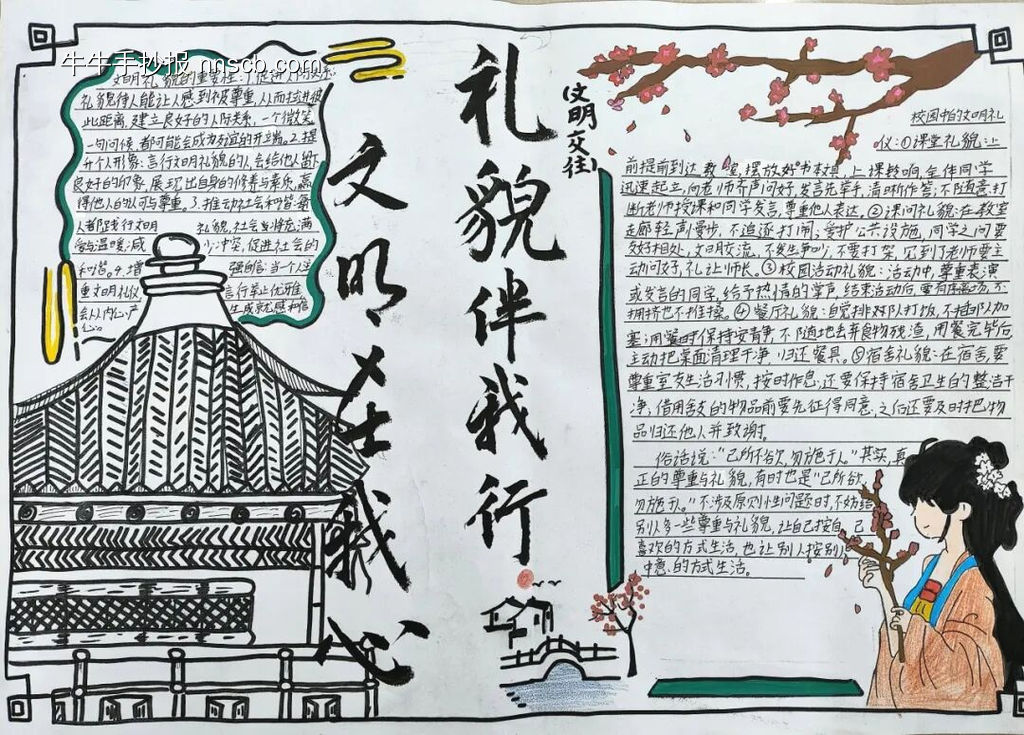 牛牛手抄报 nnscb.com
文明礼貌的重要性：1.促进人际关系:
礼貌待人能让人感到被尊重,从而拉近彼
此距离,建立良好的人际关系,一个微笑
一句问候,都可能会成为友谊的开端。2.提
升个人形象:言行文明礼貌的人,会给他人留下
良好的印象,展现出自身的修养与素质,赢
得他人的认可与尊重。3.推动社会和谐:每
人都践行文明 礼貌,社会氛围将充满
与温暖,减 少冲突,促进社会的
和谐。4.增 强自信:当一个人注
重文明礼仪, 言行举止优雅
会从内心产 生成就感和自信
心。
文明在我心
礼貌伴我行
文明交往
校园中的文明礼
仪:①课堂礼貌:上
前提前到达教室,摆放好书本教具,上课铃响,全体同学
迅速起立,向老师齐声问好,发言先举手,清晰作答;不随意打
断老师授课和同学发言,尊重他人表达。②课间礼貌:在教室
走廊轻声慢步,不追逐打闹,爱护公共设施,同学之间要
友好相处,文明交流,不发生争吵,不要打架,见到了老师要主
动问好,礼让师长。③校园活动礼貌:活动中,尊重表演
或发言的同学,给予热情的掌声,结束活动后,要有序离场,不
拥挤也不推搡。④餐厅礼貌:自觉排好队打饭,不插队加
塞;用餐时保持安静,不随地丢弃食物残渣,用餐完毕后
主动把桌面清理干净,归还餐具。⑤宿舍礼貌:在宿舍,要
尊重室友生活习惯,按时作息,还要保持宿舍卫生的整洁干
净,借用舍友的物品前要先征得同意,之后还要及时把物
品归还他人并致谢。
俗话说:“己所不欲,勿施于人。”其实,真
正的尊重与礼貌,有时也是“己所欲
勿施于人。”不涉及原则性问题时,不妨给
别人多一些尊重与礼貌,让自己按自己
喜欢的方式生活,也让别人按别人
中意的方式生活。